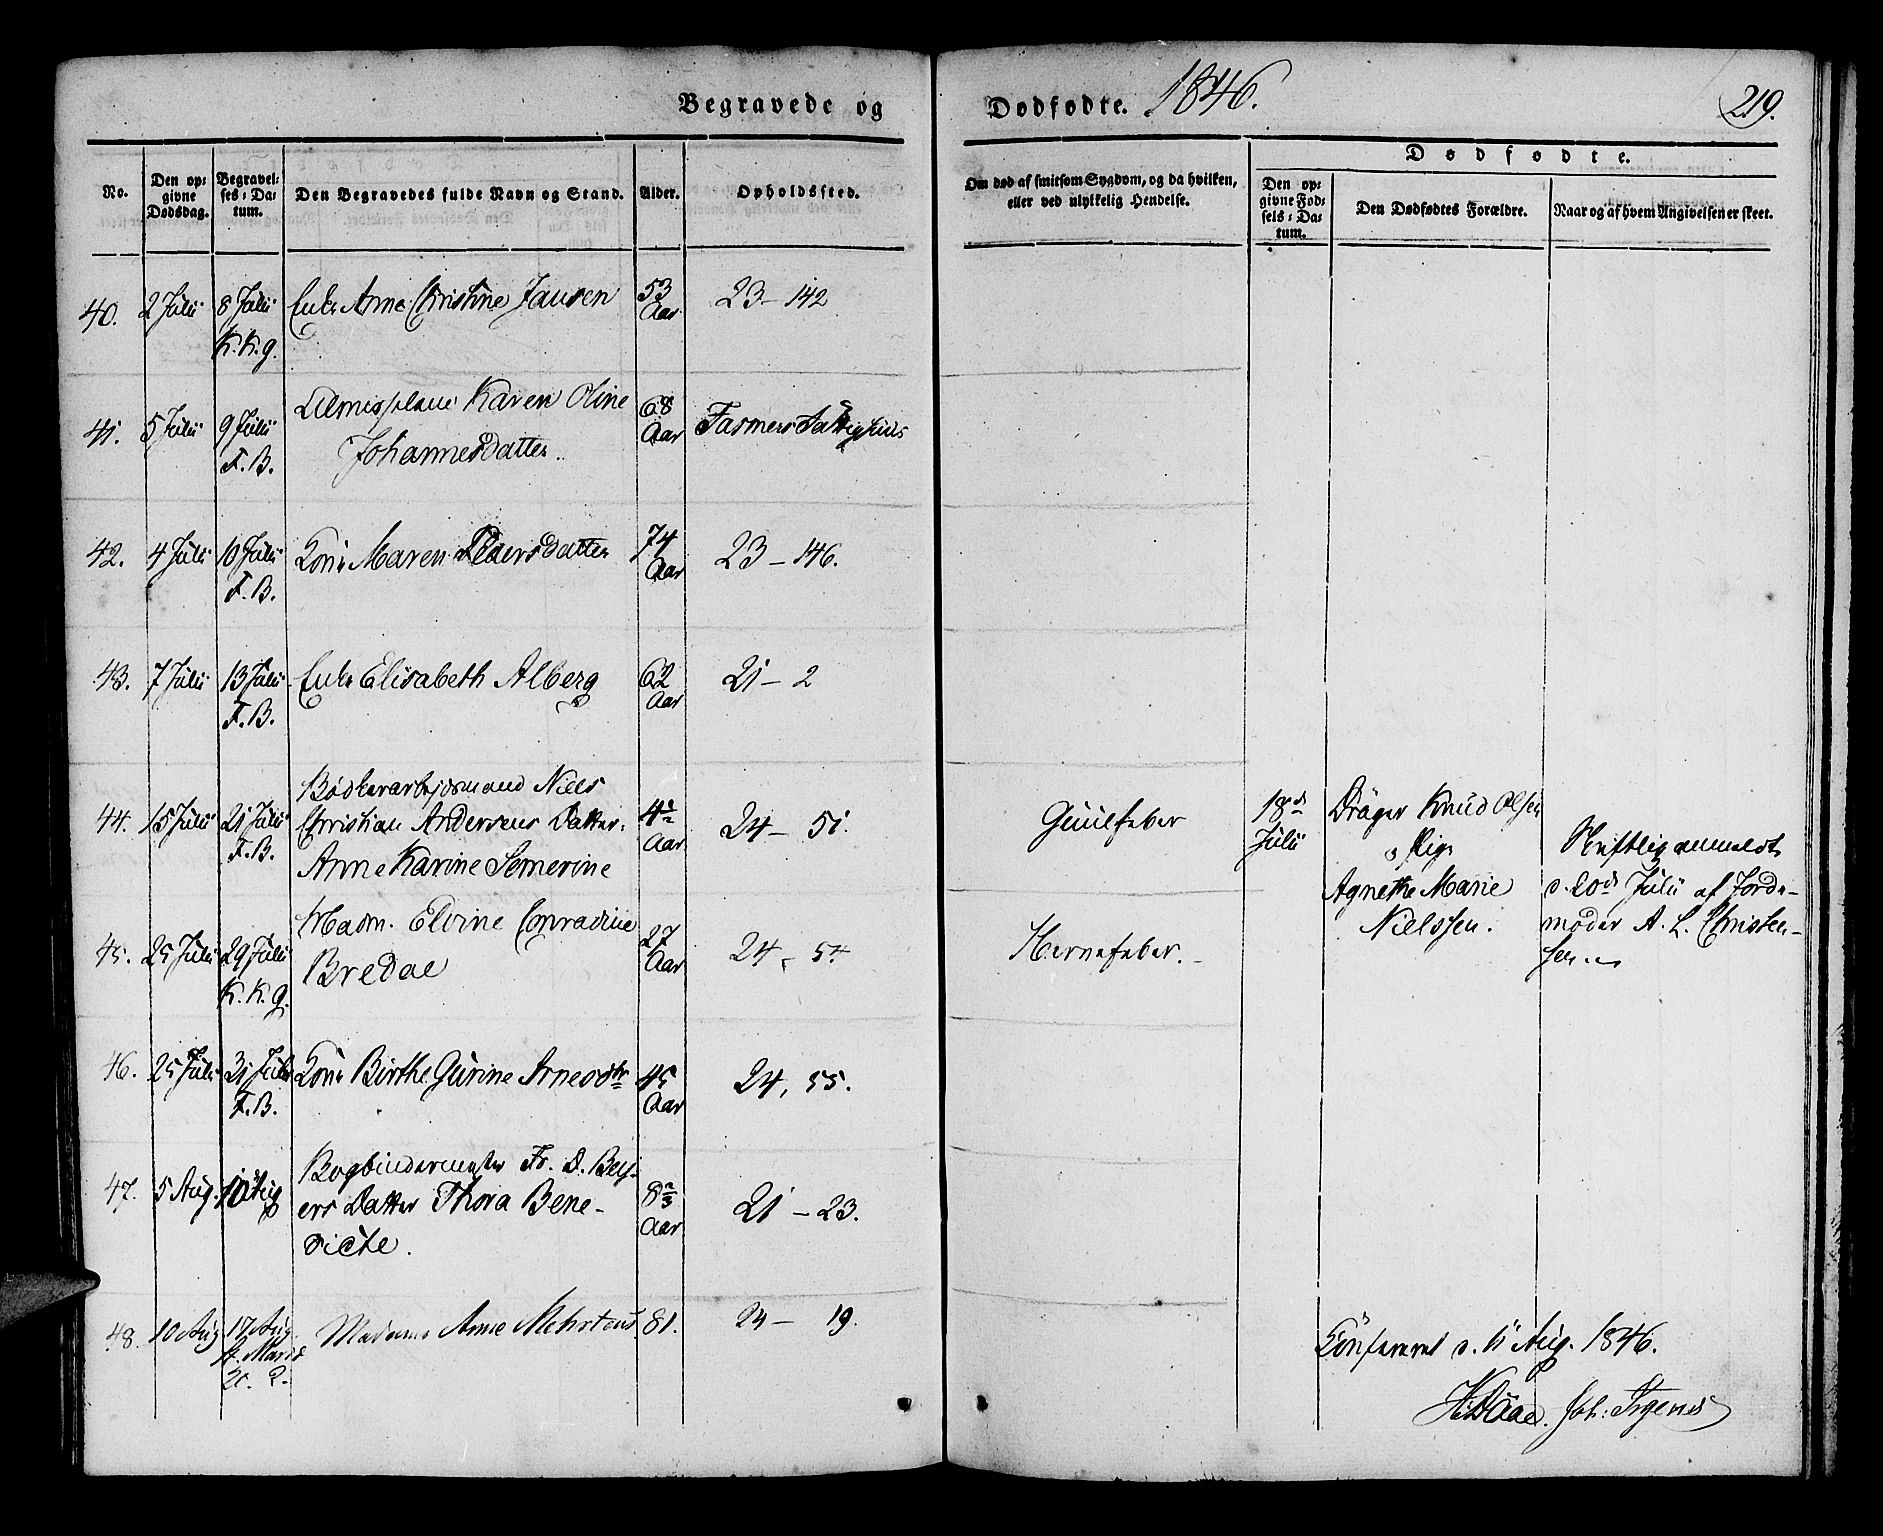 Begravede og Dødfødte. 1846. 219.
No.
Den op-
givne
Dødsdag.
Begravel-
ses-Da-
tum.
Den Begravedes fulde Navn og Stand.
Alder.
Opholdssted.
Om død af smitsom Sygdom, og da hvilken,
eller ved ulykkelig Hendelse.
Dødfødte.
Den op-
givne Fød-
sels-Da-
tum.
Den Dødfødtes Forældre.
Naar og af hvem Angivelsen er skeet.
40. 2 Julii 8 Julii Enke Anne Christine Jansen 53 23 – 142
K.K.g. Aar
41. 5 Julii 9 Julii Almisselem Karen Oline 68 Fasmers Fattighuus
F.B. Johannesdatter. Aar
42. 4 Julii 10 Julii Kone Maren Pedersdatter 74 23 – 146.
F.B. Aar
43. 7 Julii 13 Julii Enke Elisabeth Alberg 62 21 – 2
F.B. Aar
44. 15 Julii 21 Julii Bødkerarbeidsmand Niels
F.B. Christian Andersens Datter 4½ 24 – 51. Guulfeber
Anne Karine Semerine Aar
18de
Julii
Dräger Knud Olsen
og Pige
Agnethe Marie
Nielssen.
Skriftlig anmeldt
d. 20de Julii af Jorde-
moder A. L. Christen-
sen.
45. 25 Julii 29 Julii Madm. Elvine Conradine 27 24, 54 Nervefeber.
K.K.g. Bredal Aar
46. 25 Julii 31 Julii Kone Birthe Gurine Arnesdtr 45 24, 55.
F.B. Aar
47. 5 Aug. 10 Aug Bogbindermester Fr. D. Bey-
ers Datter Thora Bene- 8⅔ 21 – 23.
dicte. Aar
48. 10 Aug 17 Aug. Madame Anne Mehrtens 81. 24 – 19.
St. Mariæ
Confereret d. 11 Aug. 1846.
HDaae. Joh: Irgens